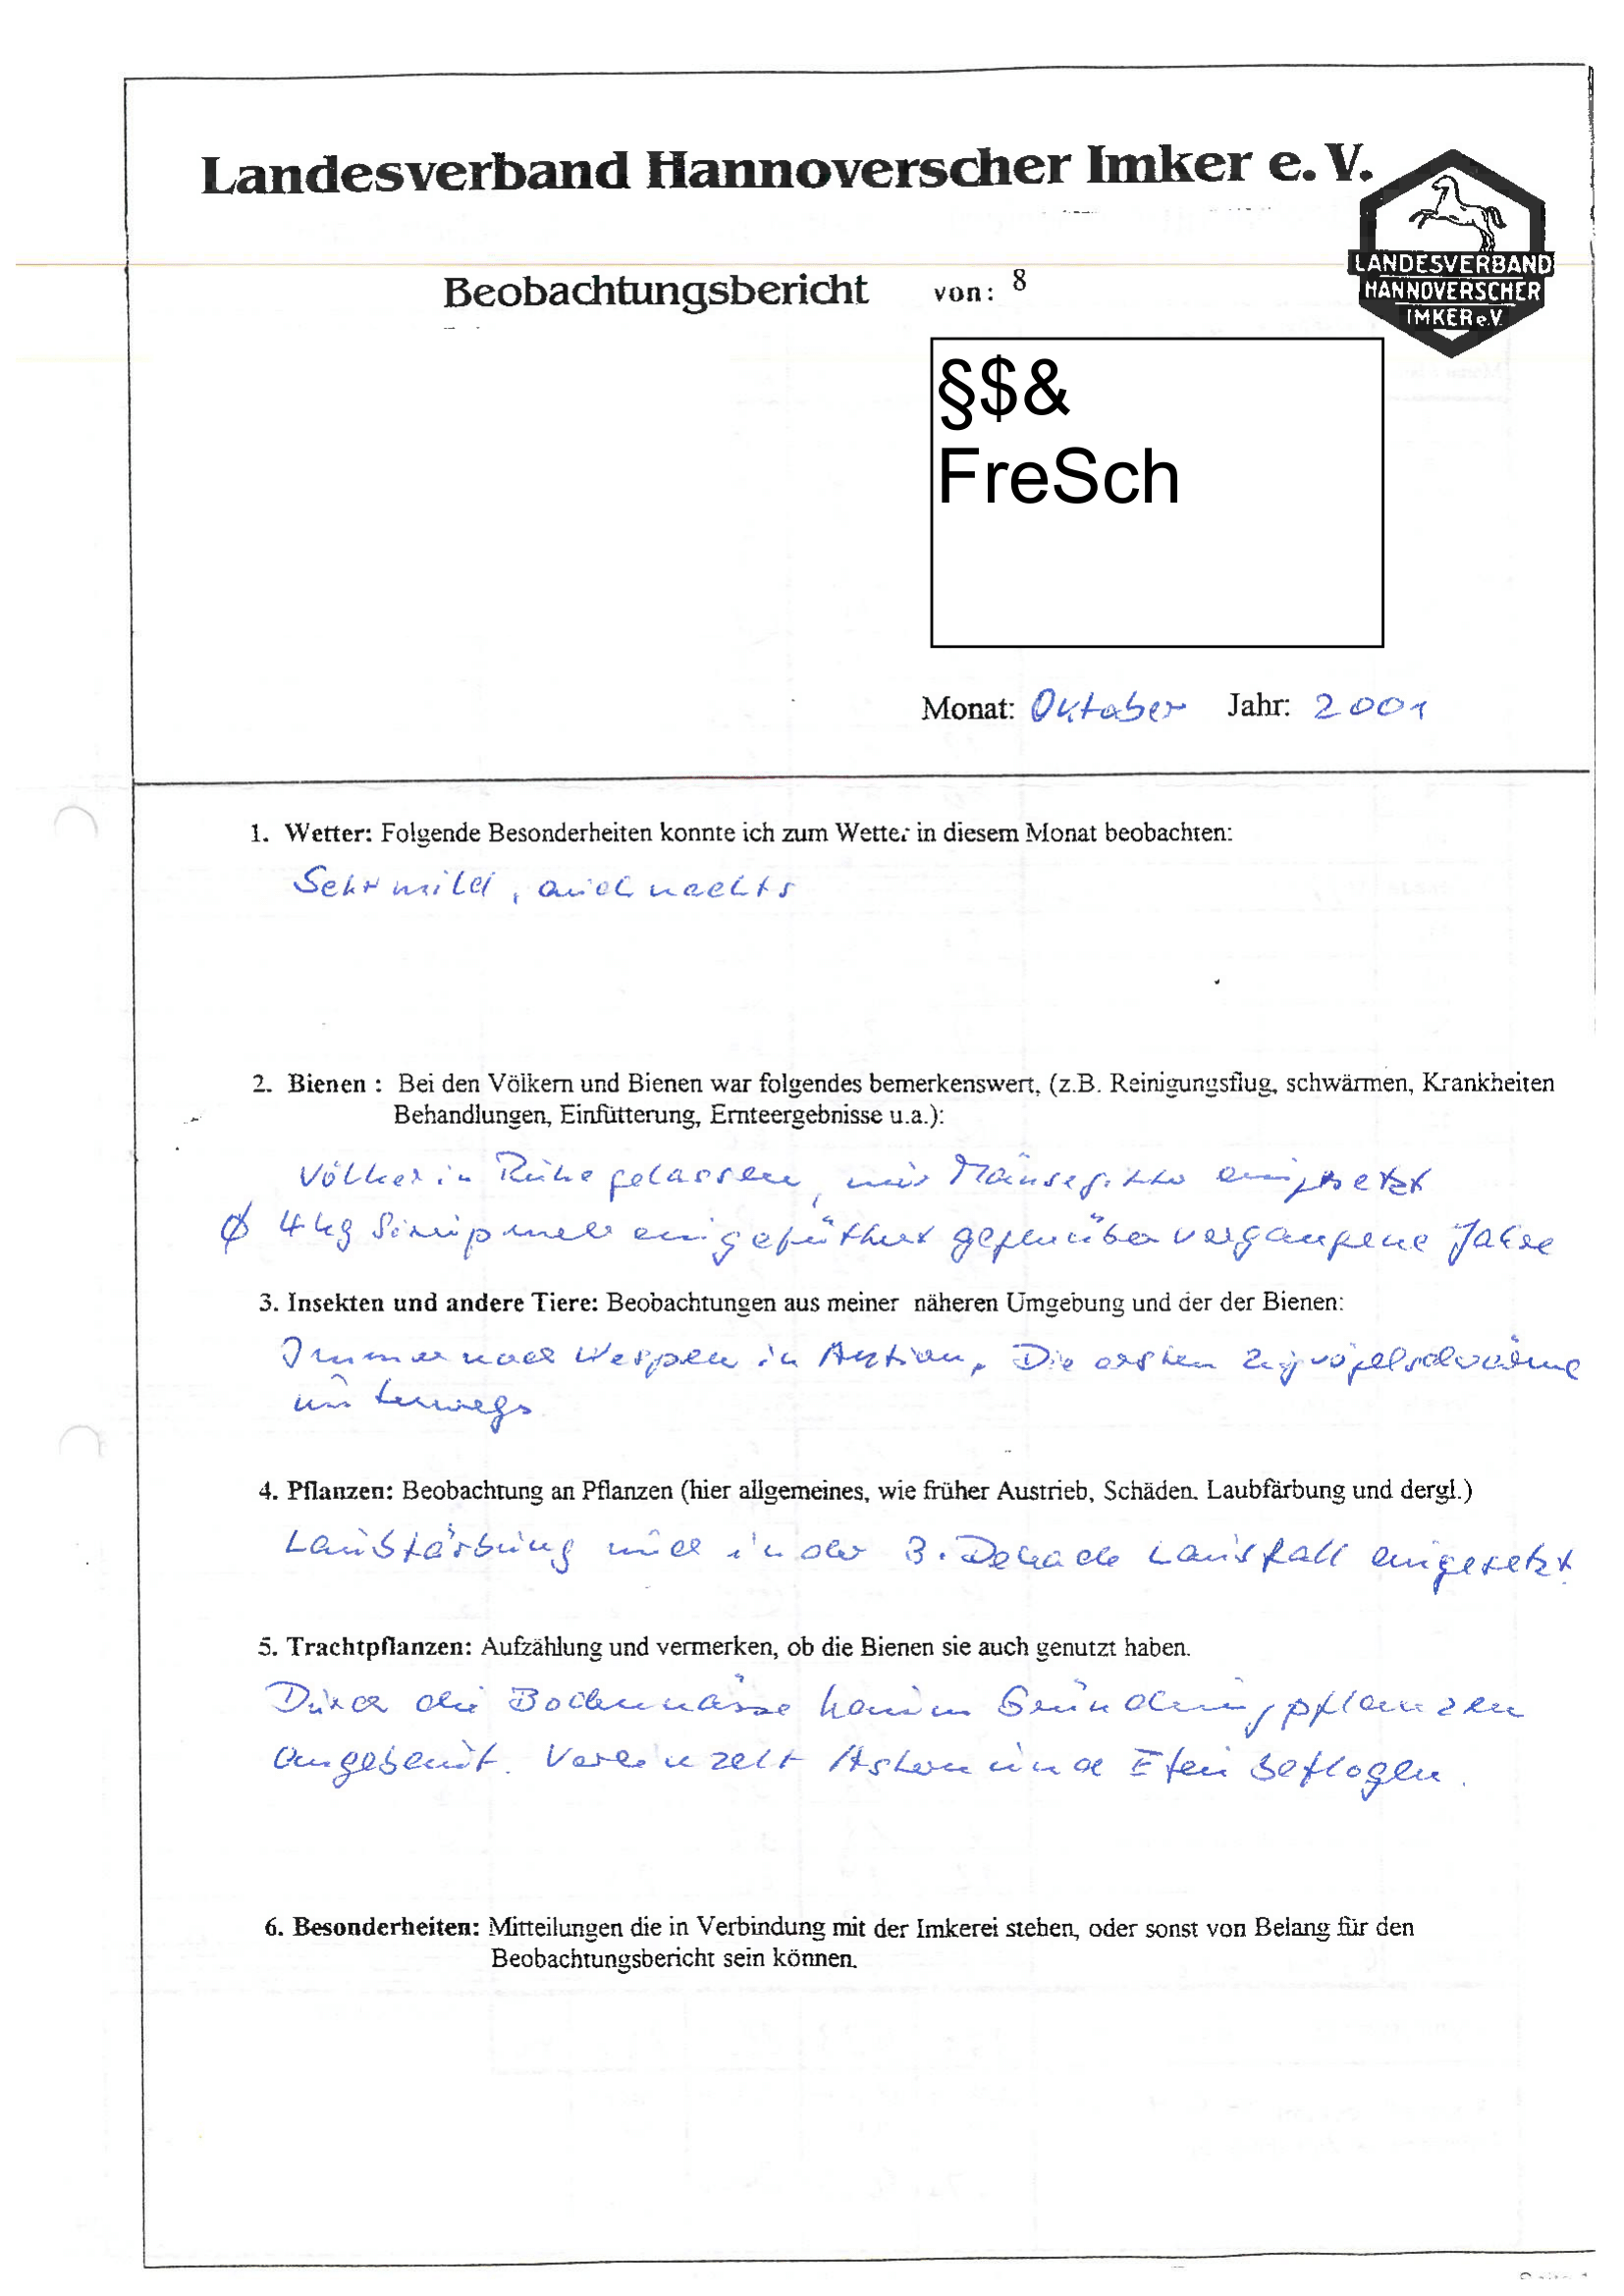 Landesverband Hannoverscher Imker e. V.
LANDESVERBAND
HANNOVERSCHER
IMKER e.V.
Beobachtungsbericht von: 8
§$&
FreSch
Monat: Oktober Jahr: 2001
1. Wetter: Folgende Besonderheiten konnte ich zum Wetter in diesem Monat beobachten:
Sehr mild, auch nachts
2. Bienen : Bei den Völkern und Bienen war folgendes bemerkenswert, (z.B. Reinigungsflug, schwärmen, Krankheiten
Behandlungen, Einfütterung, Ernteergebnisse u.a.):
Völker in Ruhe gelassen, nur Mäusegitter eingesetzt
Ø 4 kg Sirup mehr eingefüttert gegenüber vergangene Jahre
3. Insekten und andere Tiere: Beobachtungen aus meiner näheren Umgebung und der der Bienen:
Immer noch Wespen in Aktion. Die ersten Zugvögelschwärme
unterwegs
4. Pflanzen: Beobachtung an Pflanzen (hier allgemeines, wie früher Austrieb, Schäden. Laubfärbung und dergl.)
Laubfärbung und in der 3. Dekade Laubfall eingesetzt.
5. Trachtpflanzen: Aufzählung und vermerken, ob die Bienen sie auch genutzt haben.
Durch die Bodennässe kaum Gründüngpflanzen
angebaut. Vereinzelt Astern und Efeu beflogen.
6. Besonderheiten: Mitteilungen die in Verbindung mit der Imkerei stehen, oder sonst von Belang für den
Beobachtungsbericht sein können.